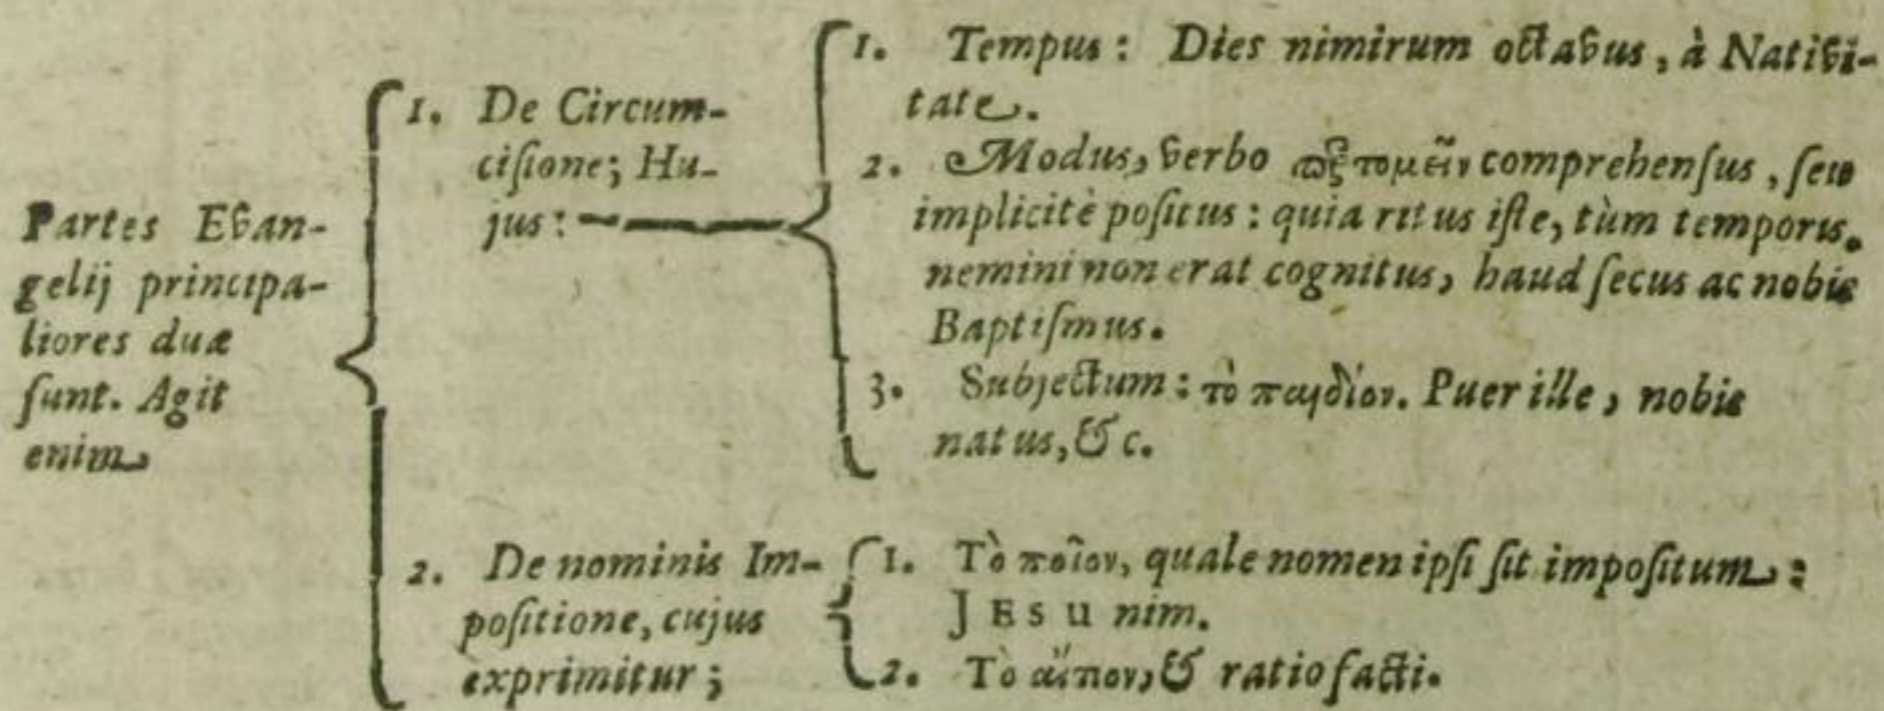 Partes Evan-
gelij principa-
liores duæ
sunt. Agit
enim
1. De Circum-
cisione; Hu-
jus:
1. Tempus: Dies nimirum octavus, à Nativi-
tate.
2. Modus, verbo περιτομεῖν comprehensus, seu
implicitè positus: quia ritus iste, tùm temporis.
nemini non erat cognitus, haud secus ac nobis
Baptismus.
3. Subjectum: τὸ παιδίον. Puer ille, nobis
natus, & c.
2. De nominis Im-
positione, cujus
exprimitur;
1. Τὸ ποῖον, quale nomen ipsi sit impositum:
JESU nim.
2. Τὸ αἴτιον, & ratio facti.